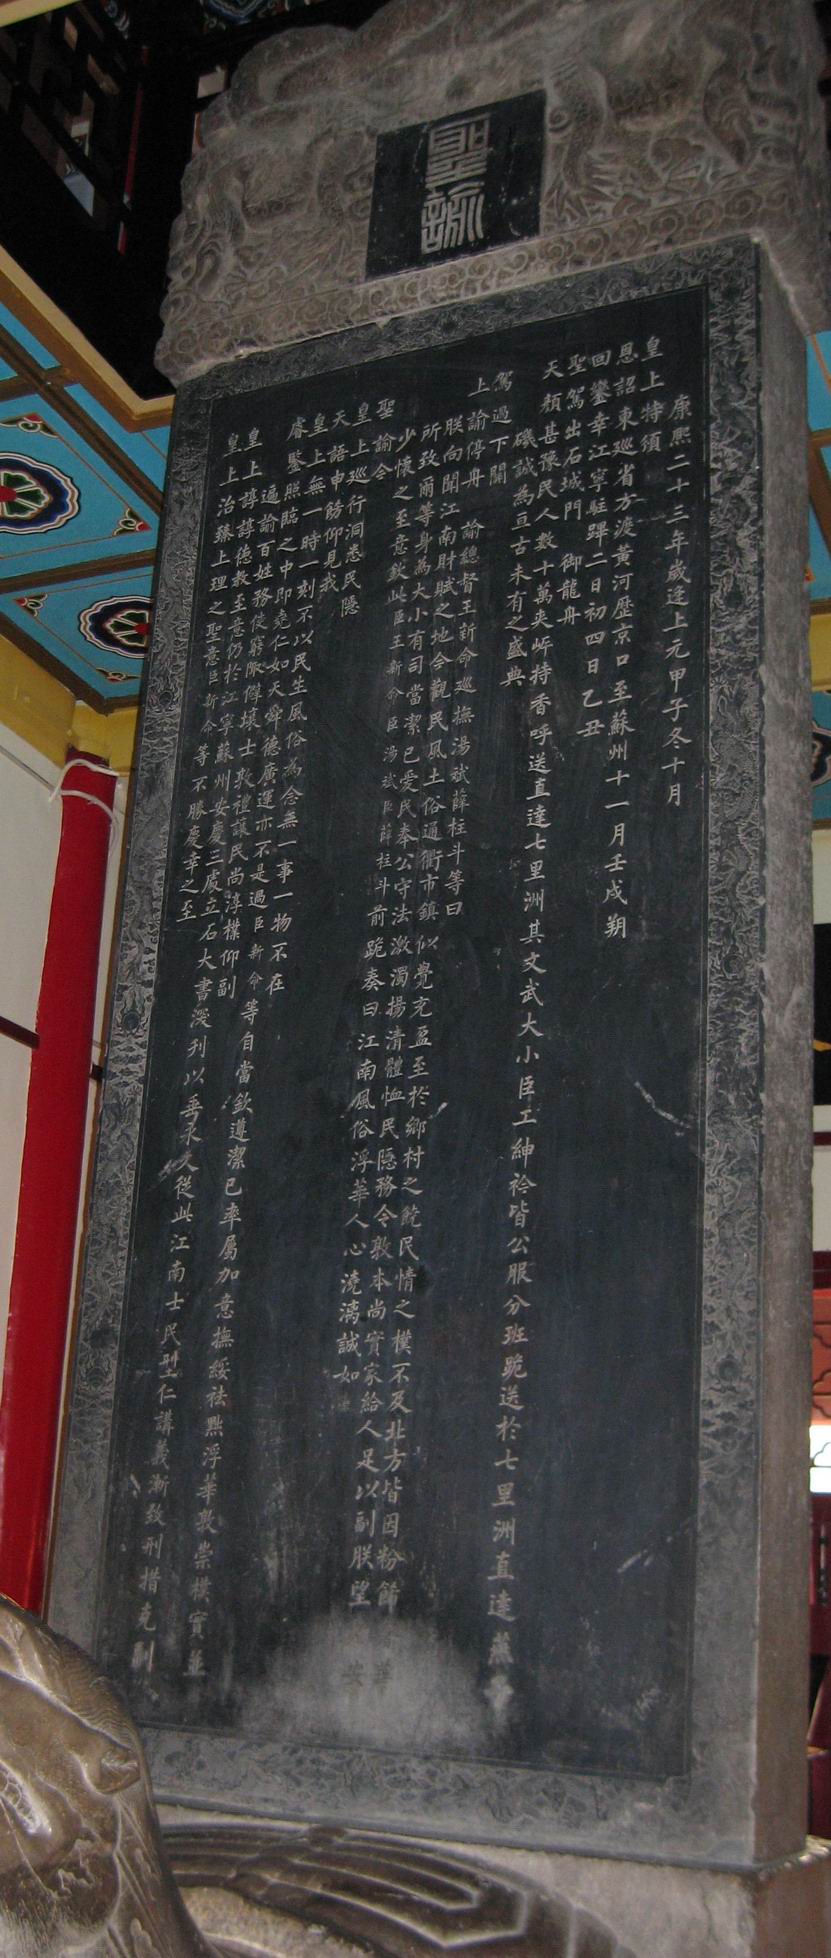 聖諭
康熙二十三年歲逢上元甲子冬十月
皇上特頒
恩詔東巡省方渡黃河歷京口至蘇州十一月壬戌朔
回鑾幸江寧駐蹕二日初四日乙丑
聖駕出石城門 御龍舟
天顏甚豫民人數十萬夾岸持香呼送直達七里洲其文武大小臣工紳衿皆公服分班跪送於七里洲直達燕子
磯誠為亘古未有之盛典
駕過下關
上諭停舟 諭總督王新命巡撫湯斌薛柱斗等曰
朕向聞江南財賦之地今觀民風土俗通衢市鎮似覺充盈至於鄉村之饒民情之樸不及北方皆因粉飾
所致爾等身為大小有司當潔己愛民奉公守法激濁揚清體恤民隱務令敦本尚實家給人足以副朕望
少懷之至意欽此臣王新命臣湯斌臣薛柱斗前跪奏曰江南風俗浮華人心澆漓誠如
聖諭今
皇上巡行洞悉民隱
天語申飭仰見我
皇上無一時一刻不以民生風俗為念無一事一物不在
睿鑒照臨之中即堯仁如天舜德廣運亦不是過臣新命等自當欽遵潔己率屬加意撫綏祛黜浮華敦崇樸實並
遍諭百姓務使窮陬僻壤士敦禮讓民尚淳樸仰副
皇上諄諄德教至意仍於江寧蘇州安慶三處立石大書深刊以垂永久從此江南士民型仁講義漸致刑措克副
皇上治臻上理之聖意臣新命等不勝慶幸之至